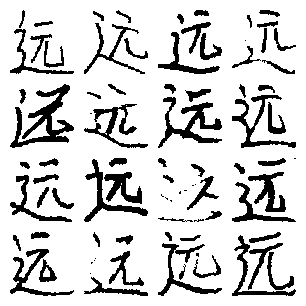 远远远远
远远远远
远远远远
远远远远